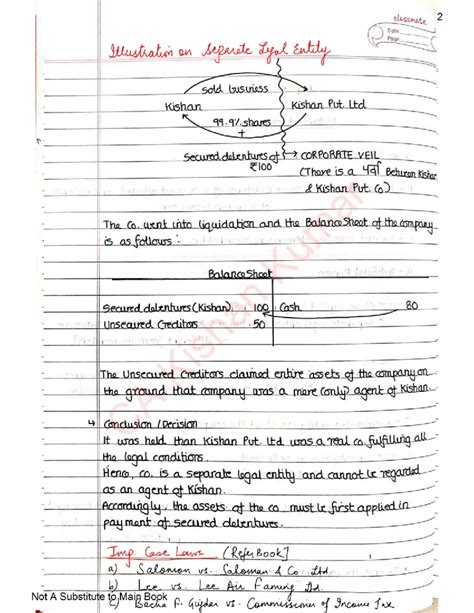 2
classmate
Date
Page
Illustration on Separate Legal Entity
sold business
Kishan
Kishan Pvt. Ltd
99.9% shares
+
Secured debentures of ₹100
CORPORATE VEIL
(There is a पर्दा Between Kishan
& Kishan Pvt. Co)
The Co. went into liquidation and the Balance Sheet of the company
is as follows:
Balance Sheet
Secured debentures (Kishan) 100 Cash 80
Unsecured Creditors 50
The Unsecured Creditors claimed entire assets of the company on
the ground that company was a mere (only) agent of Kishan.
Conclusion/Decision
It was held than Kishan Pvt. Ltd was a real co fulfilling all
the legal conditions.
Henc, co. is a separate legal entity and cannot be regarded
as an agent of Kishan.
Accordingly, the assets of the co. must be first applied in
payment of secured debentures.
Imp. Case Laws [Refer Book]
a) Salomon vs. Saloman & Co. Ltd.
b) Lee vs. Lee Air Faming Ltd.
c) Bacha F. Guzdar vs. Commissioner of Income Tax
Not A Substitute to Main Book
CA Kishan Kumar